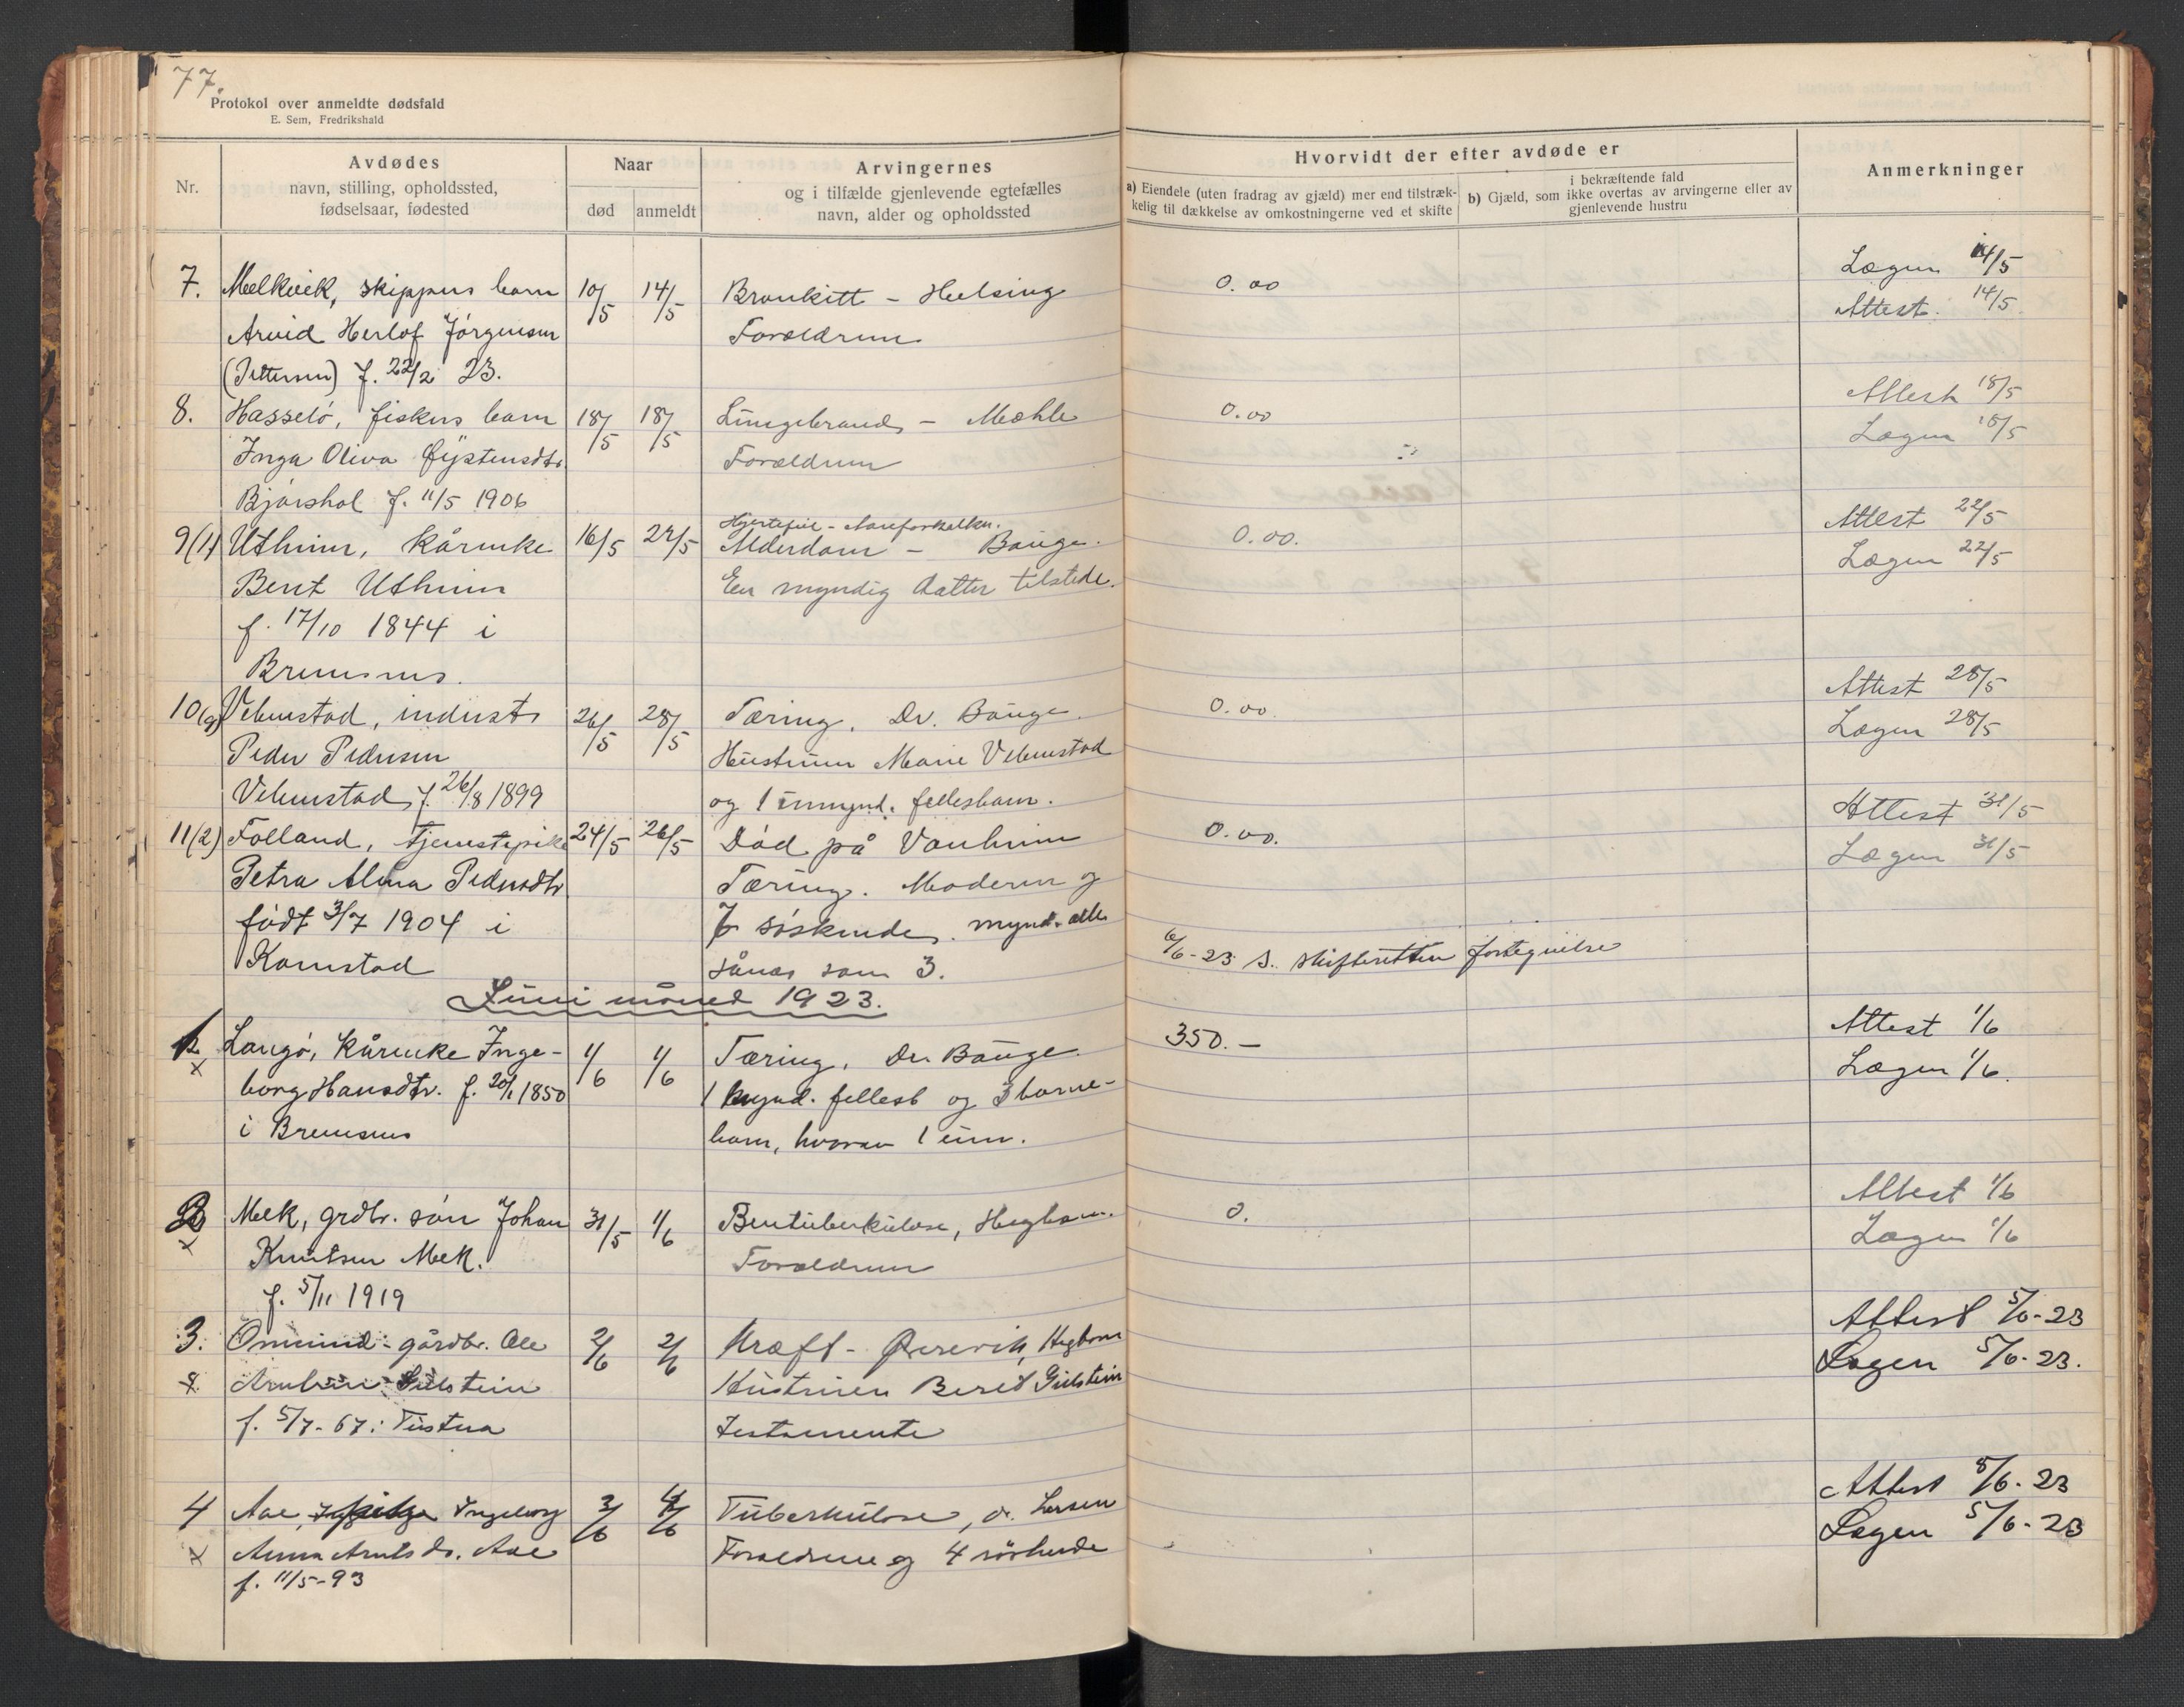 77.
Protokol over anmeldte dødsfald
E. Sem, Fredrikshald
Nr.
Avdødes
navn, stilling, opholdssted,
fødselsaar, fødested
Naar
død
anmeldt
Arvingernes
og i tilfælde gjenlevende egtefælles
navn, alder og opholdssted
Hvorvidt der efter avdøde er
a) Eiendele (uten fradrag av gjæld) mer end tilstræk-
kelig til dækkelse av omkostningerne ved et skifte
i bekræftende fald
b) Gjæld, som ikke overtas av arvingerne eller av
gjenlevende hustru
Anmerkninger
7. Melkvik, skippers barn 10/5 14/5 Bronkitt - Helsing 0.00 Lægen 14/5
Arvid Herlof Jörgensen Foreldrene Attest. 14/5
(Pettersen) f. 22/2 23.
8. Hasselö, fiskers barn 18/5 18/5 Lungebrand - Mæhle 0.00 Attest 18/5
Inga Oliva Øystensdtr. Foreldrene Lægen 18/5
Bjørshol f. 11/5 1906
9(1) Utheim, kårenke 16/5 22/5 Alderdom - Bauge. 0.00. Attest 22/5
Hjertefeil - Aareforkalkn.
Berit Utheim En myndig datter tilstede. Lægen 22/5
f. 17/10 1844 i
Bremsnes.
10(9) Vebenstad, indust 26/5 28/5 Tæring. Dr. Bauge. 0.00. Attest 28/5
Peder Pedersen Hustruen Marie Vebenstad Lægen 28/5
Vebenstad f. 26/8 1899 og 1 umynd. fellesbarn.
11(2) Folland, tjenestepike 24/5 26/5 Död på Vonheim 0.00. Attest 31/5
Petra Alma Pedersdtr Tæring. Moderen og Lægen 31/5
födt 3/7 1904 i 7 söskende. mynd. alle
Kornstad sånær som 3.
6/6-23 s. skifteretten fortegnelse
Juni måned 1923.
1. Langö, kårenke Inge- 1/6 1/6 Tæring. Dr. Bauge. 350.- Attest 1/6
x borg Hansdtr. f. 20/1 1850 1 mynd. fellesb og 3 barne- Lægen 1/6.
i Bremsnes barn, hvorav 1 um.
2 Mek, grdbr. sön Johan 31/5 1/6 Bentuberkulose, Hegbom. 0. Attest 1/6
x Knutsen Mek. Foreldrene Lægen 1/6
f. 5/11 1919
3. Omsund - gårdbr. Ole 2/6 2/6 Kræft - Ørevik, Hegbom Attest 5/6-23
x Gulstein Hustruen Beret Gulstein Lægen 5/6-23.
f. 5/7-67: Tustna Testamente
4 Aae, Ingeborg 3/6 4/6 Tuberkulose, dr. Larsen Attest 5/6-23
x Anna Arntsdr. Aae Foreldrene og 4 söskende Lægen 5/6-23
f. 11/5-93